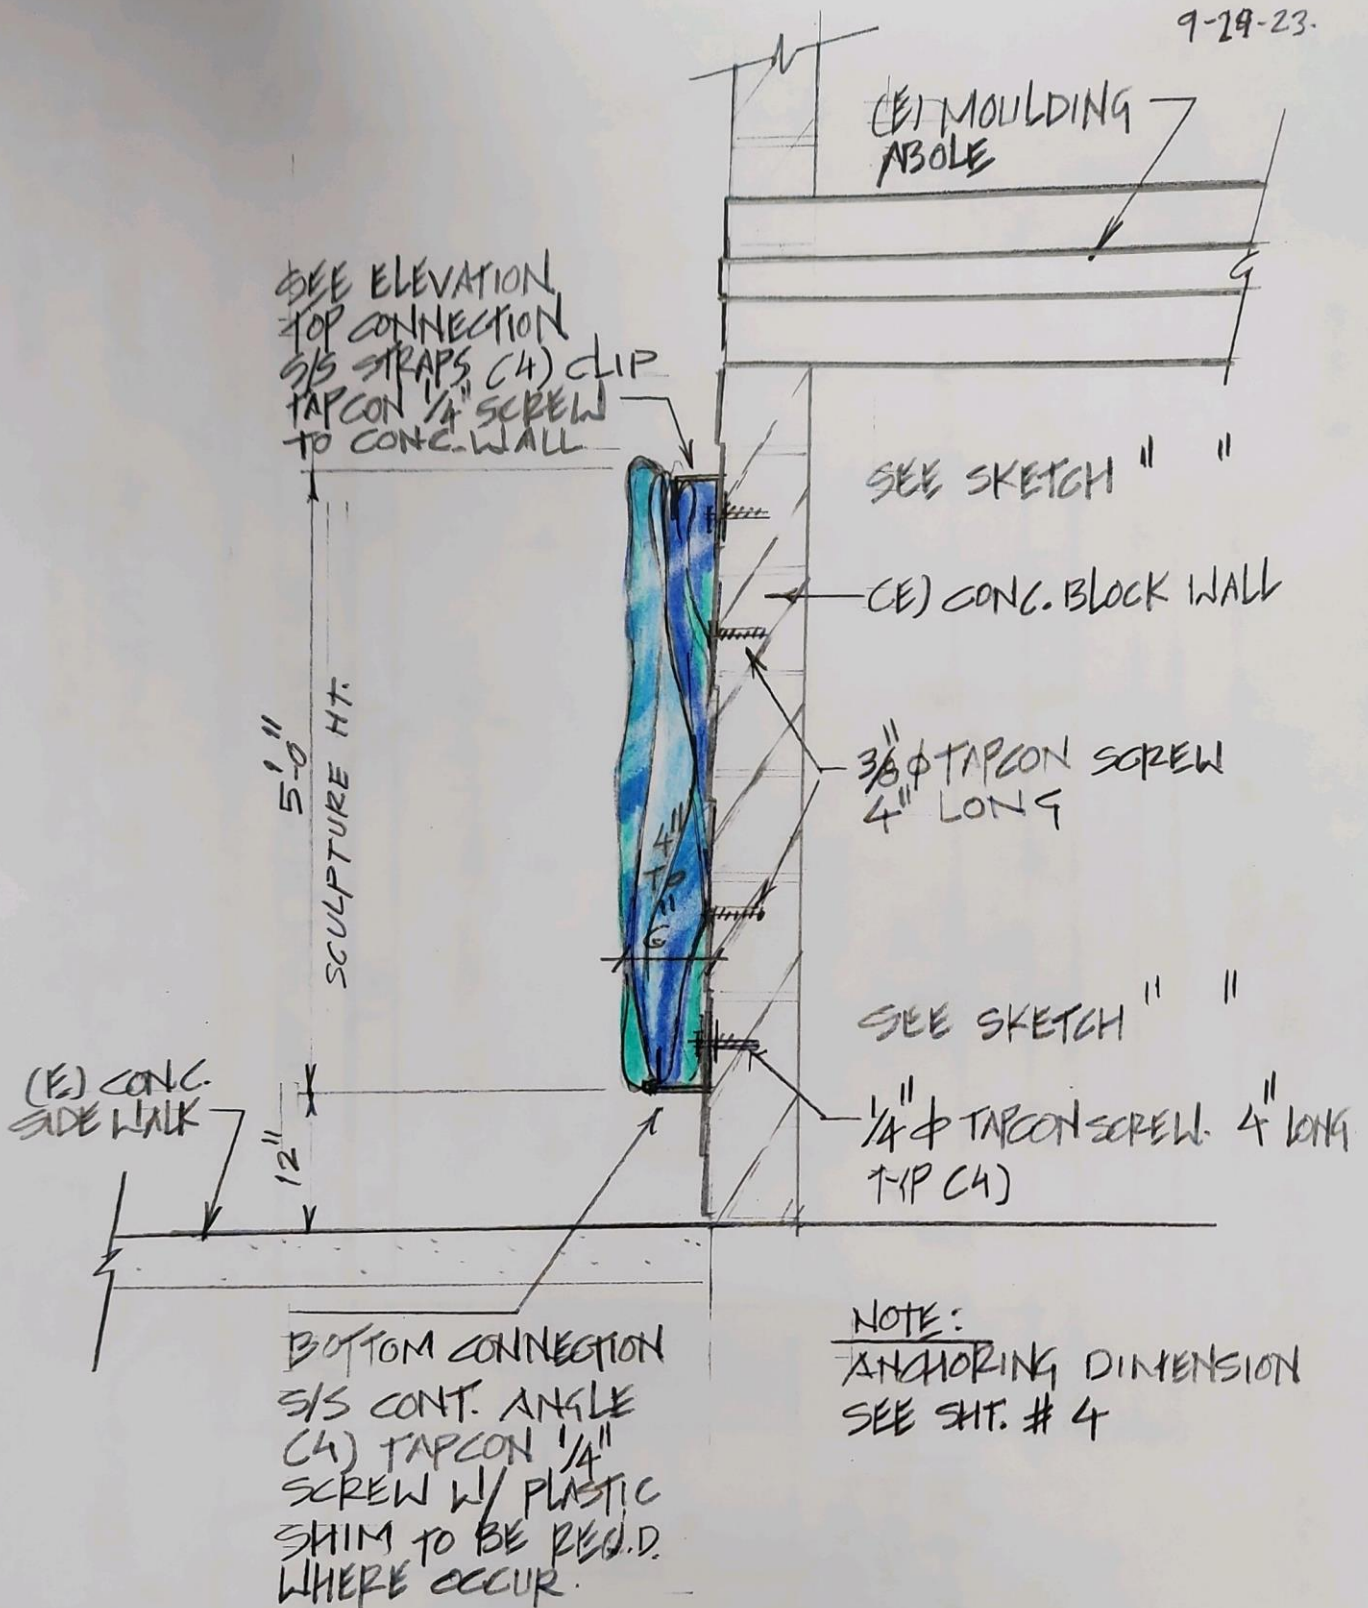 9-29-23.
(E) MOULDING
ABOLE
SEE ELEVATION
TOP CONNECTION
S/S STRAPS (4) CLIP
TAPCON 1/4" SCREW
TO CONC. WALL
SEE SKETCH "    "
(E) CONC. BLOCK WALL
5'-0"
SCULPTURE HT.
3/8" ϕ TAPCON SCREW
4" LONG
4"
TO
6"
SEE SKETCH "    "
(E) CONC.
SIDEWALK
12"
1/4" ϕ TAPCON SCREW. 4" LONG
TYP (4)
BOTTOM CONNECTION
S/S CONT. ANGLE
(4) TAPCON 1/4"
SCREW W/ PLASTIC
SHIM TO BE REQ.D.
WHERE OCCUR.
NOTE:
ANCHORING DIMENSION
SEE SHT. # 4